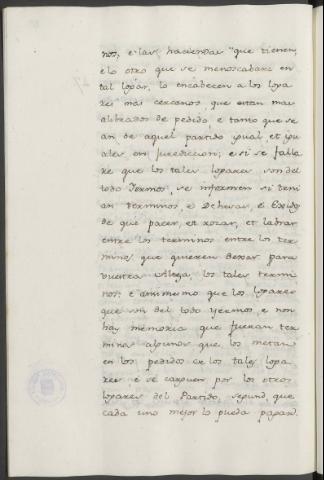 nos, e las haciendas que tienen,
e lo otro que se menoscabare en
tal logar, lo encabecen a los loga
res mas cercanos que estan mas
alibiados de pedido e tanto que se
an de aquel partido igual et igu
ales en jurediccion; e si se falla
re que los tales logares son del
todo Yermos, se informen si tení
an terminos e Dehesas, e Exidos
de que pacer, et rozar, et labrar
entre los terminos entre los ter
minos que quieren dexar para
vuestra los tales termi
nos: e asimismo que los logares
que son del todo yermos e non
hay memoria que fueran ter
minos algunos que los metan
en los pedidos en los tales loga
res e se carguen por los otros
logares del Partido, segund que
cada uno mejor lo pueda pagar.